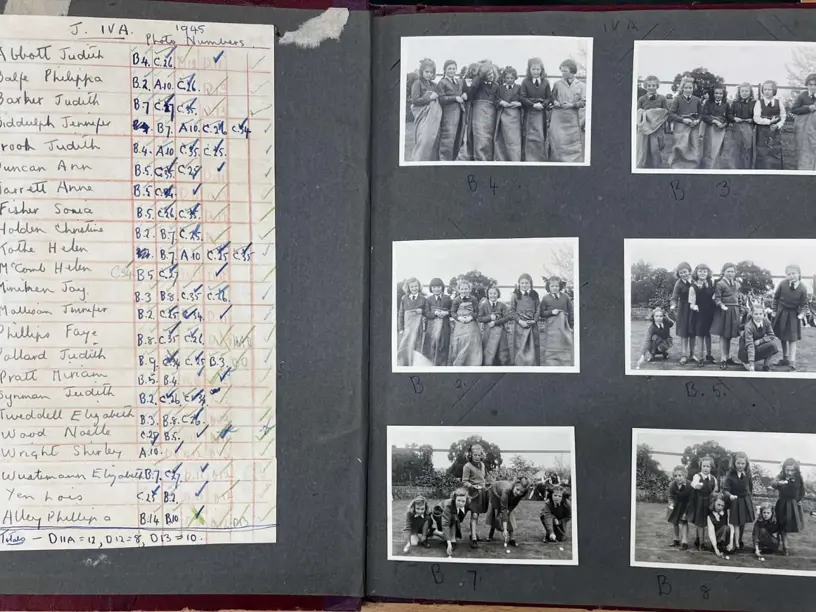 J. IVA. 1945
Photo Numbers
Abbott Judith B.4. C.26
Balfe Philippa B.2. A.10. C.26.
Barker Judith B.7 C.27 C.35.
Biddulph Jennifer B.7. A.10. C.26 C.34
Brook Judith B.4. A.10 C.35. C.25.
Duncan Ann B.5. C.35 C.28
Jarrett Anne B.5
Fisher Sonia B.5. C.26
Holden Christine B.2. B.7. C.25.
Kathe Helen B.7. A.10 C.25 C.35
McComb Helen C.34 B.5 C.27
Miniken Jay. B.3 B.8. C.35 C.26.
Mallison Jennifer B.2 C.25 C.34
Phillips Faye B.8. C.35 C.26
Pollard Judith B.9. C.34 C.25 B.3.
Pratt Miriam B.5. B.4.
Synman Judith B.2. C.26
Tweddell Elizabeth B.3. B.8. C.26.
Wood Noelle C.28 B.5.
Wright Shirley A.10.
Wustemann Elizabeth B.7. C.27
Yen Lois C.25 B.2
Alley Phillipa B.14 B10
Totals — D11A = 12, D12 = 8, D13 = 10.
IVA
B 4
B 3
B 2.
B. 5.
B 7.
B 8